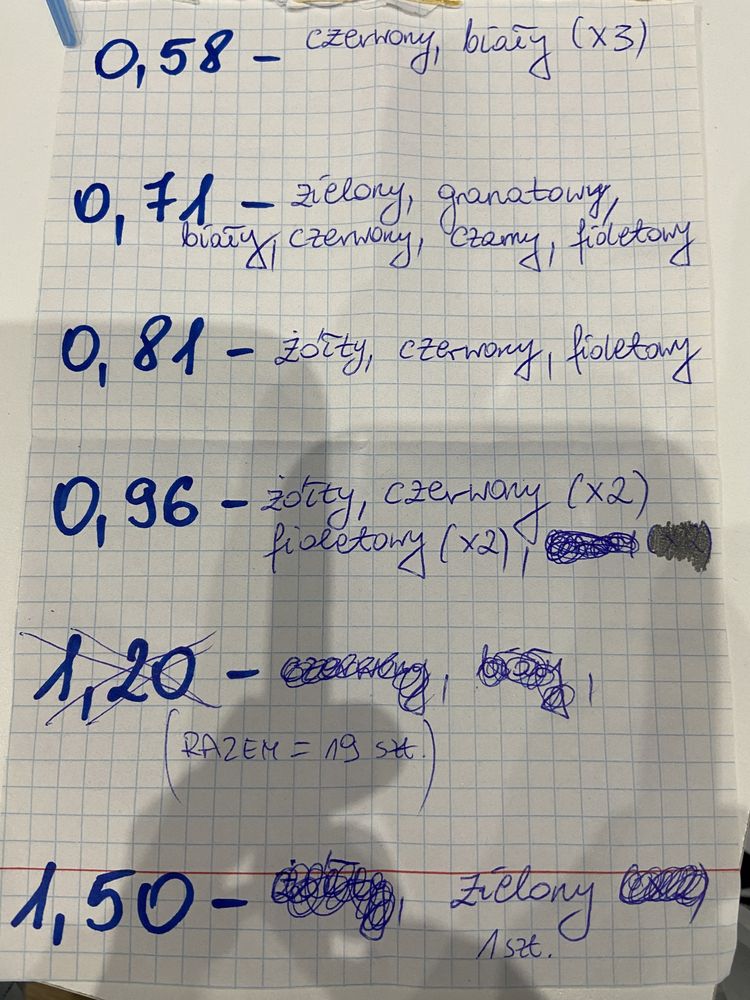 0,58 – czerwony, biały (x3)
0,71 – zielony, granatowy,
biały, czerwony, czarny, fioletowy
0,81 – żółty, czerwony, fioletowy
0,96 – żółty, czerwony (x2)
fioletowy (x2),
1,20 –
(RAZEM = 19 szt.)
1,50 – zielony
1 szt.